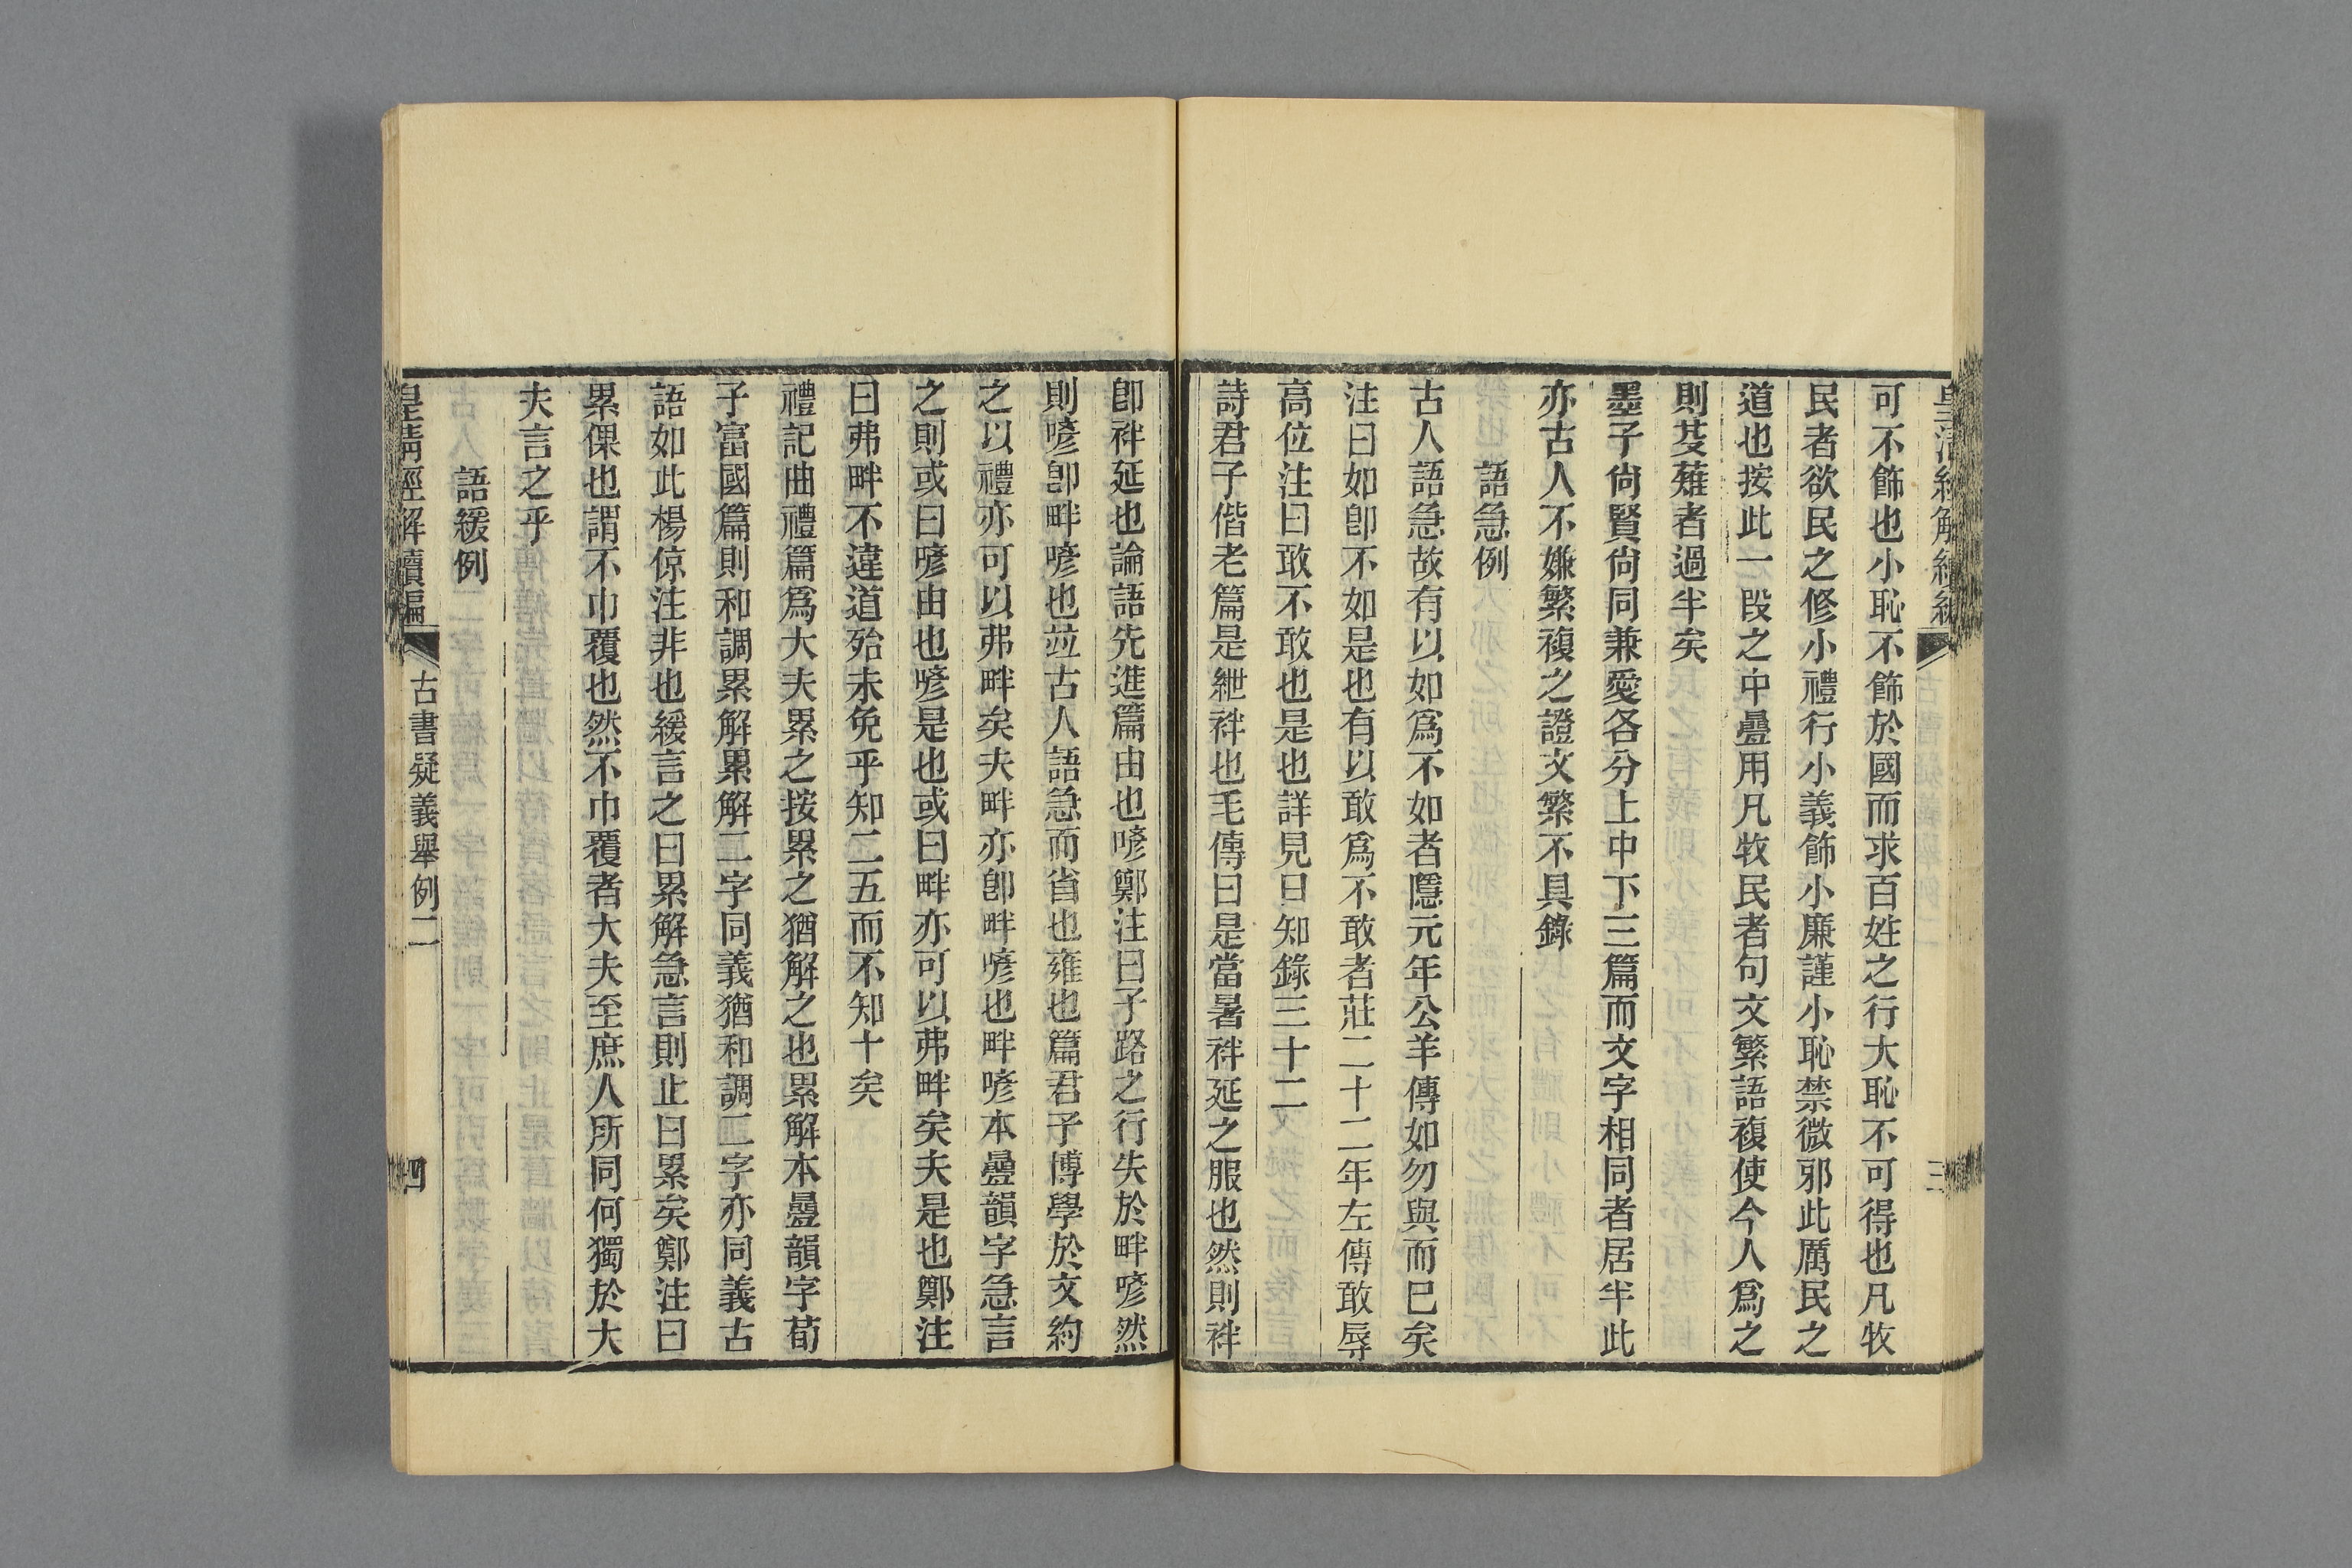 可不飾也小恥不飾於國而求百姓之行大恥不可得也凡牧
民者欲民之修小禮行小義飾小廉謹小恥禁微邪此厲民之
道也按此一段之中疊用凡牧民者句文繁語複使今人爲之
則芟薙者過半矣
墨子尙賢尙同兼愛各分上中下三篇而文字相同者居半此
亦古人不嫌繁複之證文繁不具錄
語急例
古人語急故有以如爲不如者隱元年公羊傳如勿與而巳矣
注曰如卽不如是也有以敢爲不敢者莊二十二年左傳敢辱
高位注曰敢不敢也是也詳見日知錄三十二
詩君子偕老篇是紲袢也毛傳曰是當暑袢延之服也然則袢
卽袢延也論語先進篇由也喭鄭注曰子路之行失於畔喭然
則喭卽畔喭也竝古人語急而省也雍也篇君子博學於文約
之以禮亦可以弗畔矣夫畔亦卽畔喭也畔喭本疊韻字急言
之則或曰喭由也喭是也或曰畔亦可以弗畔矣夫是也鄭注
曰弗畔不違道殆未免乎知二五而不知十矣
禮記曲禮篇爲大夫累之按累之猶解之也累解本疊韻字荀
子富國篇則和調累解累解二字同義猶和調二字亦同義古
語如此楊倞注非也緩言之曰累解急言則止曰累矣鄭注曰
累倮也謂不巾覆也然不巾覆者大夫至庶人所同何獨於大
夫言之乎
語緩例
皇清經解續編 古書疑義舉例二 四